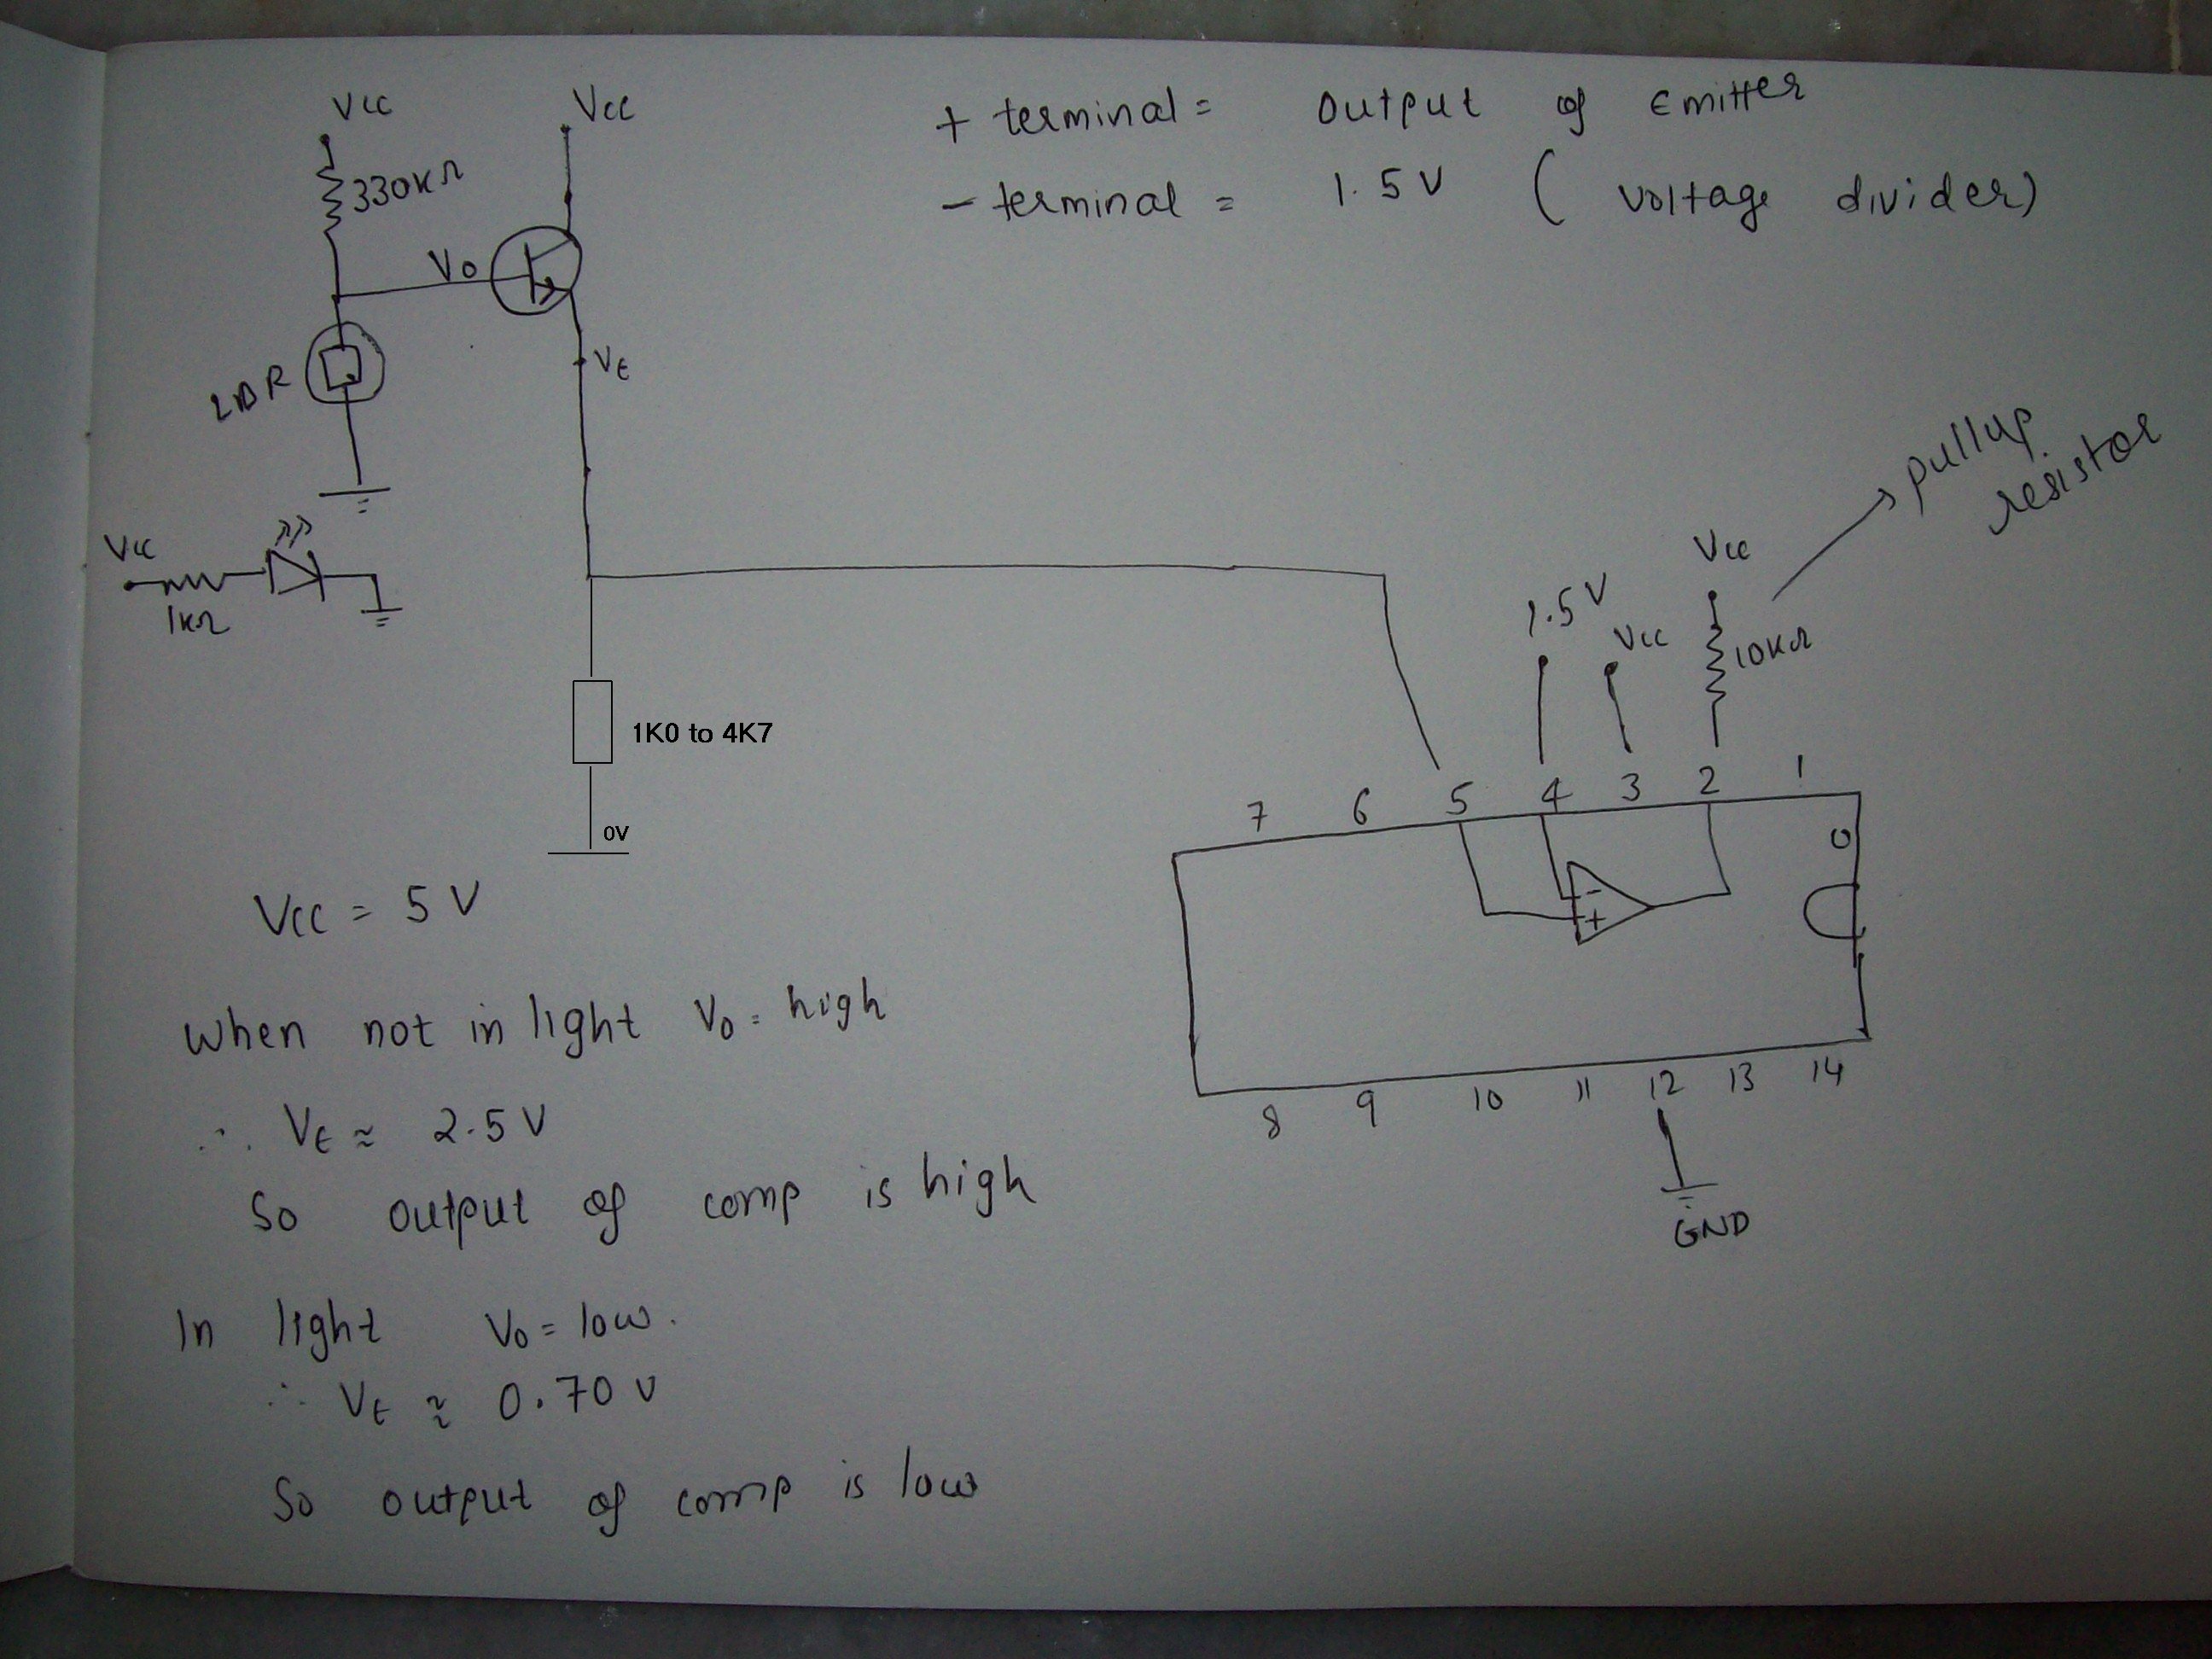 Vcc
Vcc
330KΩ
Vo
VE
LDR
Vcc
1KΩ
+ terminal = output of Emitter
- terminal = 1.5V ( voltage divider)
pullup
resistor
Vcc
1.5V
Vcc
10KΩ
1K0 to 4K7
0V
7 6 5 4 3 2 1
- 
+
8 9 10 11 12 13 14
GND
Vcc = 5V
When not in light Vo = high
∴ VE ≈ 2.5V
So output of comp is high
In light Vo = low.
∴ VE ≈ 0.70V
So output of comp is low